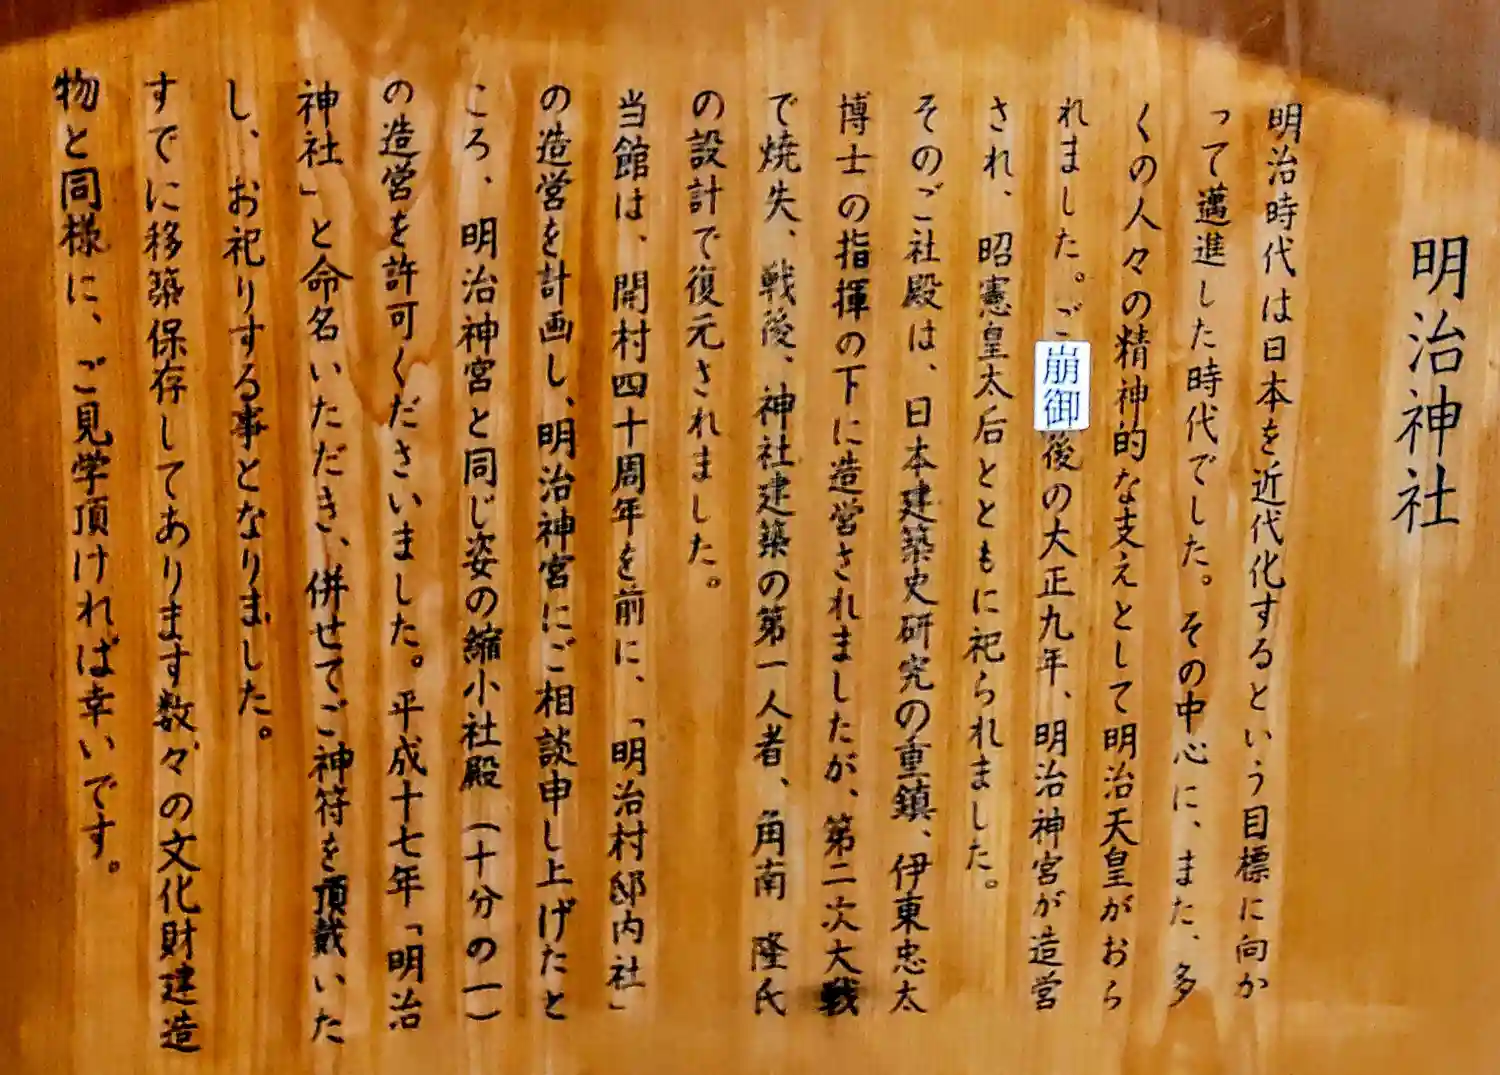 明治神社
明治時代は日本を近代化するという目標に向か
って邁進した時代でした。その中心に、また、多
くの人々の精神的な支えとして明治天皇がおら
れました。ご崩御後の大正九年、明治神宮が造営
され、昭憲皇太后とともに祀られました。
そのご社殿は、日本建築史研究の重鎮、伊東忠太
博士の指揮の下に造営されましたが、第二次大戦
で焼失、戦後、神社建築の第一人者、角南 隆氏
の設計で復元されました。
当館は、開村四十周年を前に、「明治村邸内社」
の造営を計画し、明治神宮にご相談申し上げたと
ころ、明治神宮と同じ姿の縮小社殿(十分の一)
の造営を許可くださいました。平成十七年「明治
神社」と命名いただき、併せてご神符を頂戴いた
し、お祀りする事となりました。
すでに移築保存してあります数々の文化財建造
物と同様に、ご見学頂ければ幸いです。